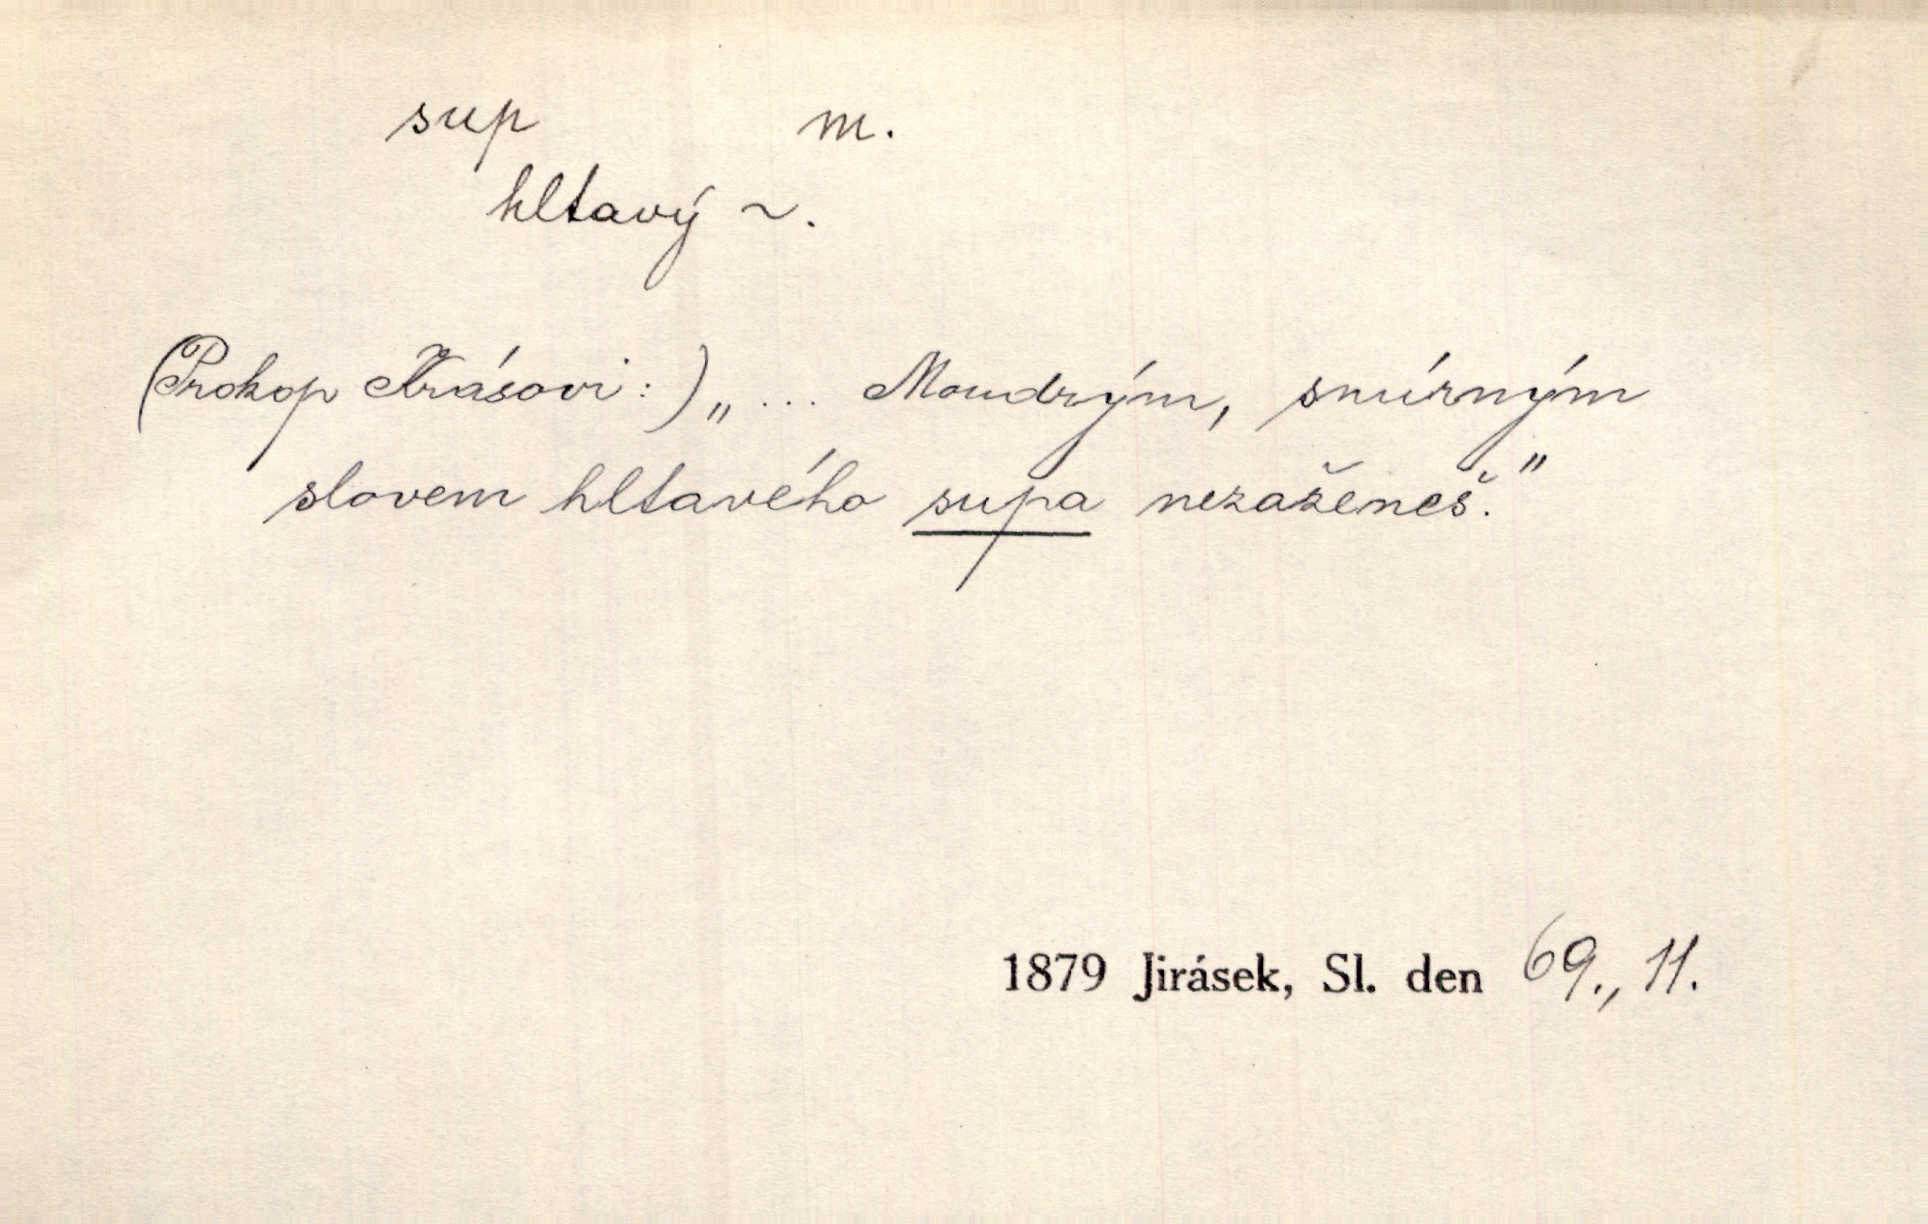 sup m.
hltavý ~.
(Prokop Krásovi:) „... Moudrým, smírným
slovem hltavého supa nezaženeš."
1879 Jirásek, Sl. den 69., 11.